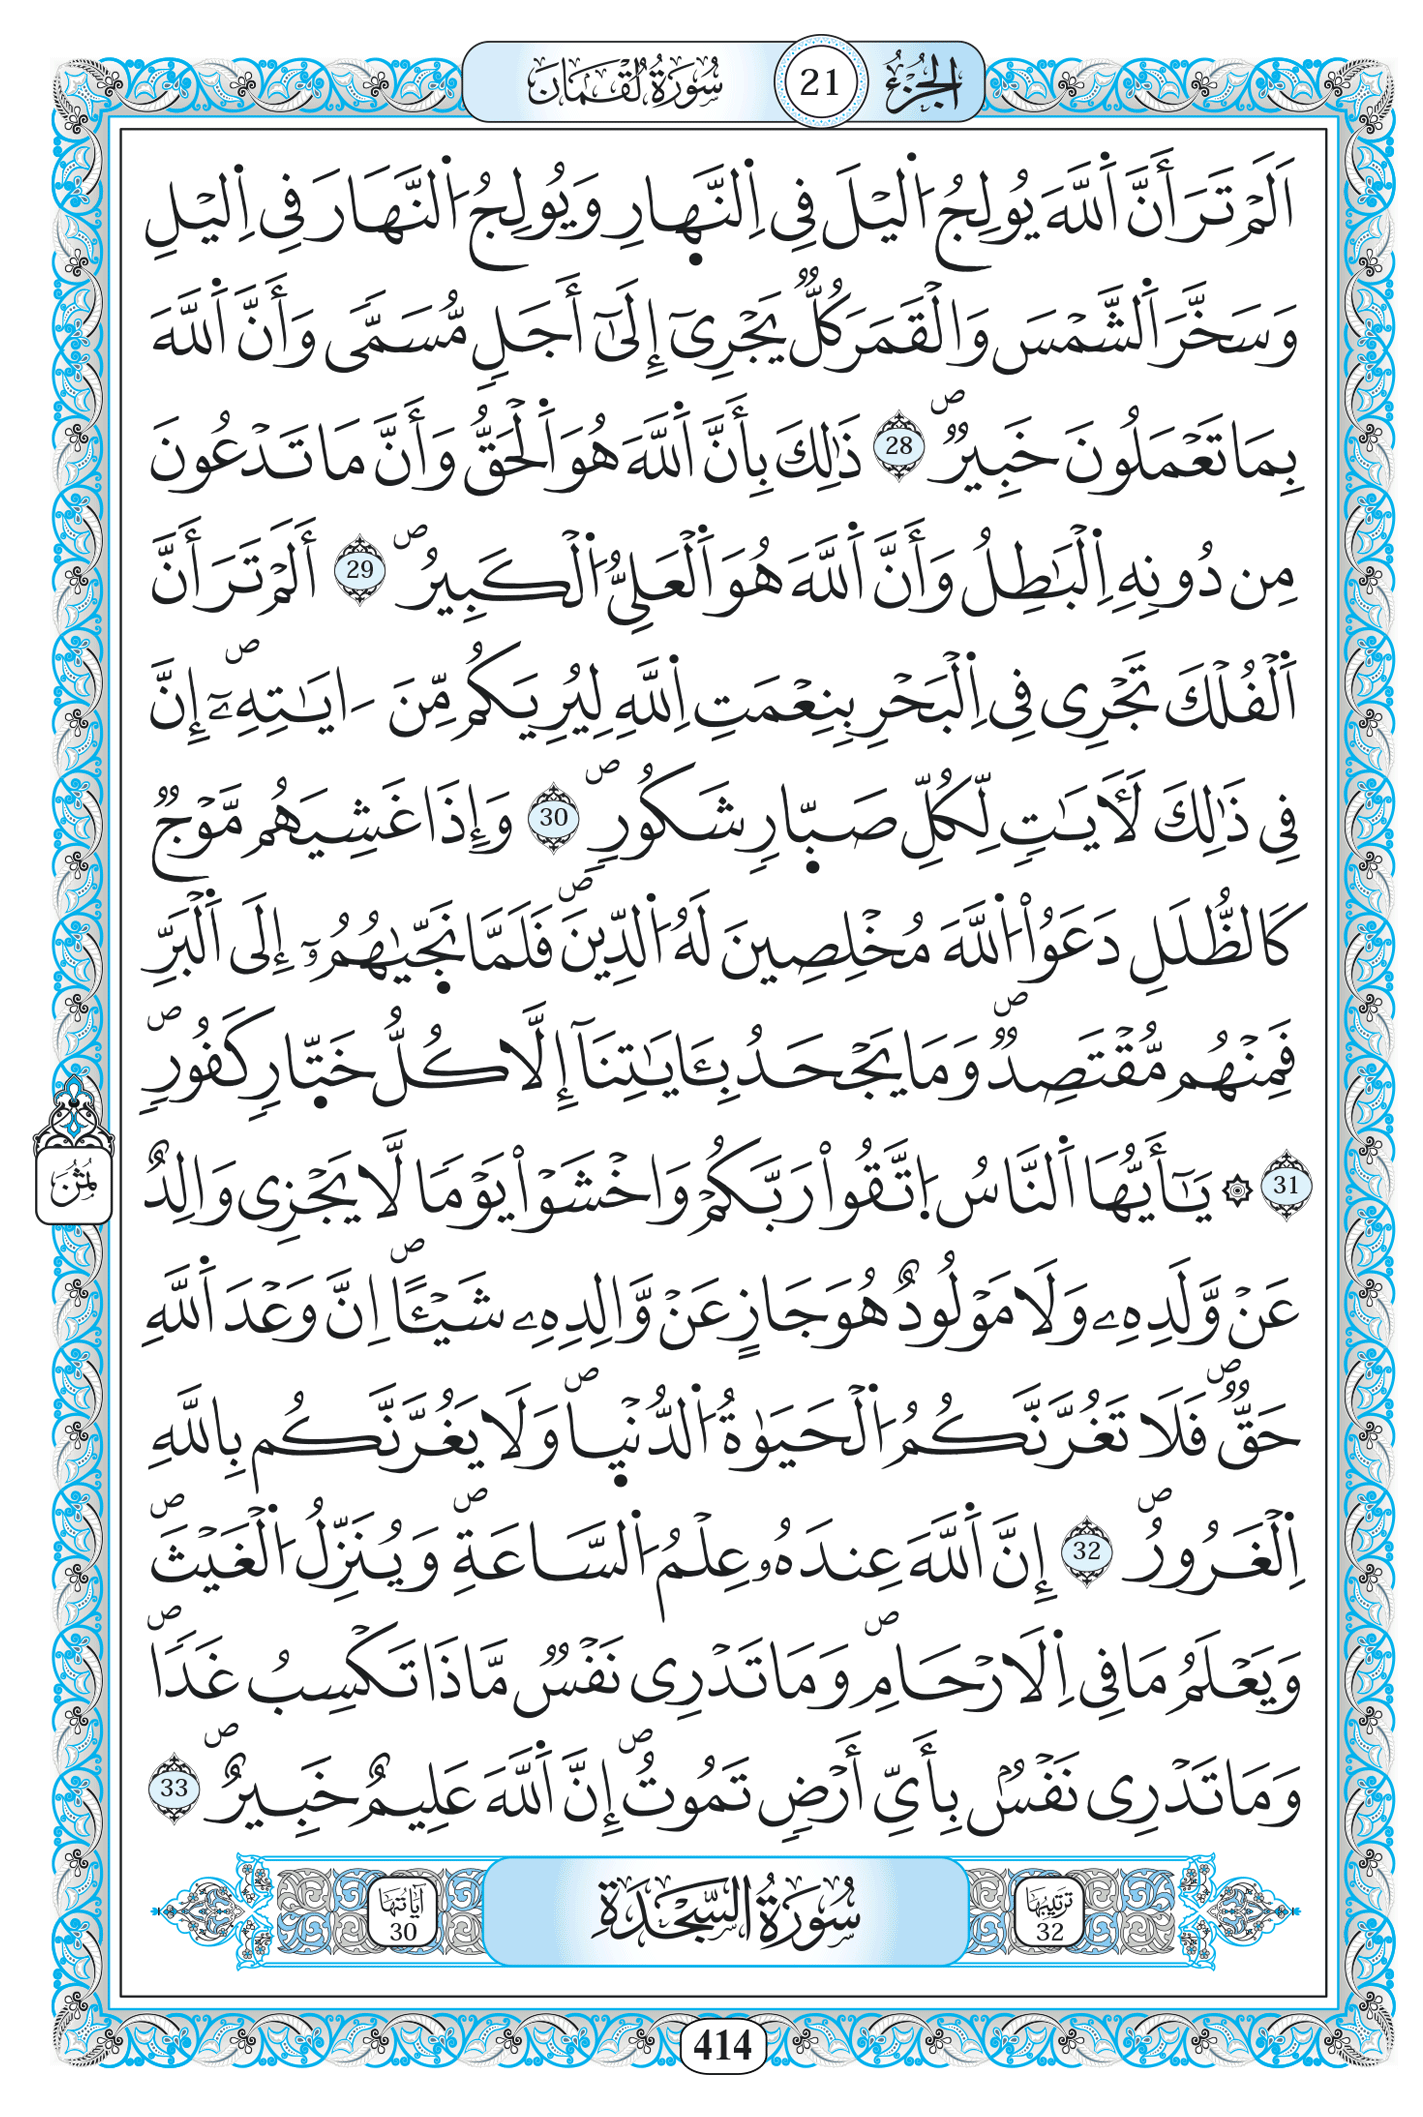 الجزء 21 سورة لقمان
اَلَمْ تَرَ أَنَّ اَ۬للَّهَ يُولِجُ اُ۬ليْلَ فِے اِ۬لنَّه۪ارِ وَيُولِجُ اُ۬لنَّهَارَ فِے اِ۬ليْلِ
وَسَخَّرَ اَ۬لشَّمْسَ وَالْقَمَرَ كُلّٞ يَجْرِےٓ إِلَىٰٓ أَجَلٖ مُّسَمّىٗ وَأَنَّ اَ۬للَّهَ
بِمَا تَعْمَلُونَ خَبِيرٞۖ 28 ذَٰلِكَ بِأَنَّ اَ۬للَّهَ هُوَ اَ۬لْحَقُّ وَأَنَّ مَا تَدْعُونَ
مِن دُونِهِ اِ۬لْبَٰطِلُ وَأَنَّ اَ۬للَّهَ هُوَ اَ۬لْعَلِيُّ اُ۬لْكَبِيرُۖ 29 أَلَمْ تَرَ أَنَّ
اَ۬لْفُلْكَ تَجْرِے فِے اِ۬لْبَحْرِ بِنِعْمَتِ اِ۬للَّهِ لِيُرِيَكُم مِّنَ ءَايَٰتِهِۦٓۖ إِنَّ
فِے ذَٰلِكَ لَأٓيَٰتٖ لِّكُلِّ صَبّ۪ارٖ شَكُورٖۖ 30 وَإِذَا غَشِيَهُم مَّوْجٞ
كَالظُّلَلِ دَعَوُاْ اُ۬للَّهَ مُخْلِصِينَ لَهُ اُ۬لدِّينَۖ فَلَمَّا نَجّ۪يٰهُمُۥٓ إِلَى اَ۬لْبَرِّ
فَمِنْهُم مُّقْتَصِدٞۖ وَمَا يَجْحَدُ بِـَٔايَٰتِنَآ إِلَّا كُلُّ خَتّ۪ارٖ كَفُورٖۖ
31 ۞ يَٰٓأَيُّهَا اَ۬لنَّاسُ اُ۪تَّقُواْ رَبَّكُمْ وَاخْشَوْاْ يَوْماٗ لَّا يَجْزِے وَالِدٌ
ثُمُن
عَنْ وَّلَدِهِۦ وَلَا مَوْلُودٌ هُوَ جَازٍ عَنْ وَّالِدِهِۦ شَيْـٔاًۖ اِنَّ وَعْدَ اَ۬للَّهِ
حَقّٞۖ فَلَا تَغُرَّنَّكُمُ اُ۬لْحَيَوٰةُ اُ۬لدُّنْي۪اۖ وَلَا يَغُرَّنَّكُم بِاللَّهِ
اِ۬لْغَرُورُۖ 32 إِنَّ اَ۬للَّهَ عِندَهُۥ عِلْمُ اُ۬لسَّاعَةِۖ وَيُنَزِّلُ اُ۬لْغَيْثَۖ
وَيَعْلَمُ مَا فِے اِ۬لَارْحَامِۖ وَمَا تَدْرِے نَفْسٞ مَّاذَا تَكْسِبُ غَداٗۖ
وَمَا تَدْرِے نَفْسُۢ بِأَيِّ أَرْضٖ تَمُوتُۖ إِنَّ اَ۬للَّهَ عَلِيمٌ خَبِيرٌۖ 33
ترتيبها 32 سورة السجدة آياتها 30
414